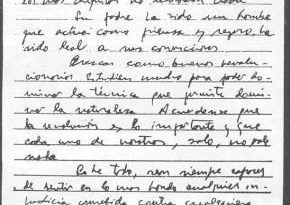 Su padre ha sido un hombre
que actúa como piensa y, seguro, ha
sido leal a sus convicciones.
Crezcan como buenos revolu-
cionarios. Estudien mucho para poder do-
minar la técnica que permite domi-
nar la naturaleza. Acuérdense que
la revolución es lo importante y que
cada uno de nosotros, solo, no vale
nada.
Sobre todo, sean siempre capaces
de sentir en lo más hondo cualquier in-
justicia cometida contra cualquiera